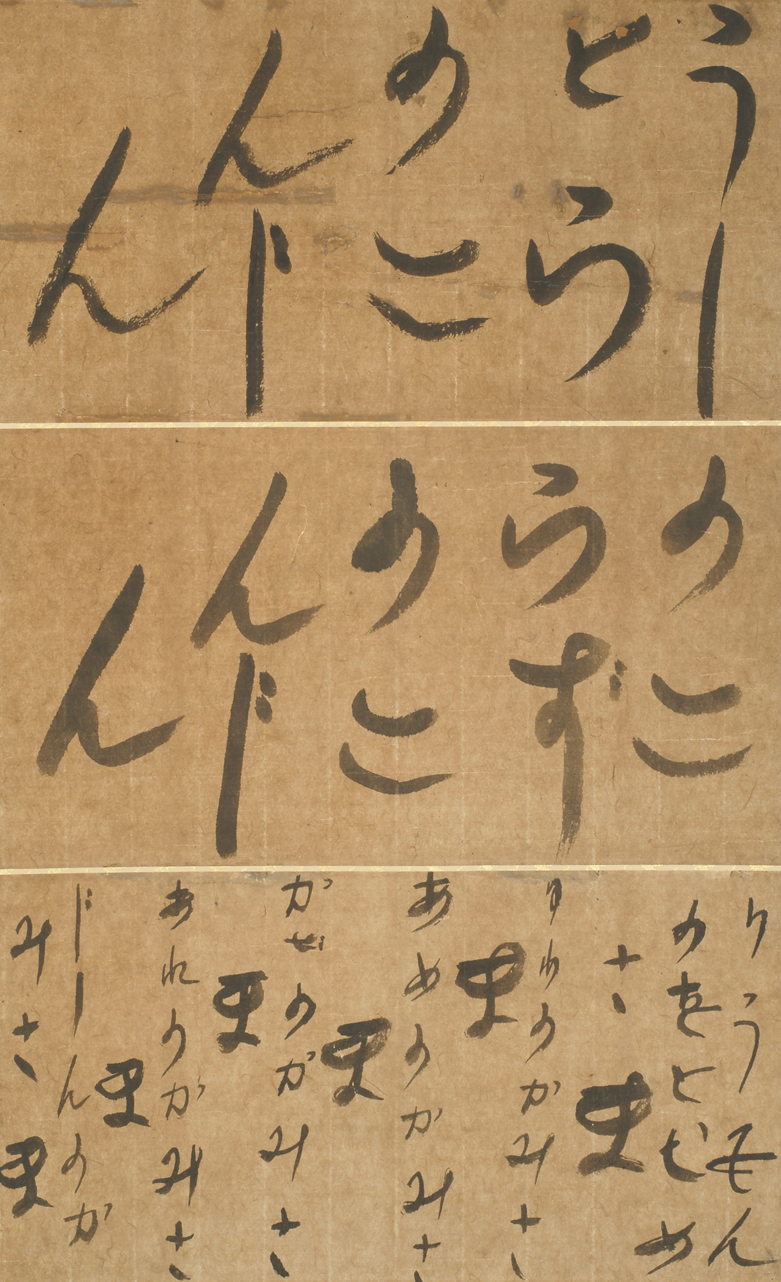 うし
とら
のこ
んじ
ん
のこ
らず
のこ
んじ
ん
りうもん
のをとひめ
さま
いわのかみさ
ま
あめのかみさ
ま
かぜのかみさ
ま
あれのかみさ
ま
じしんのか
みさま